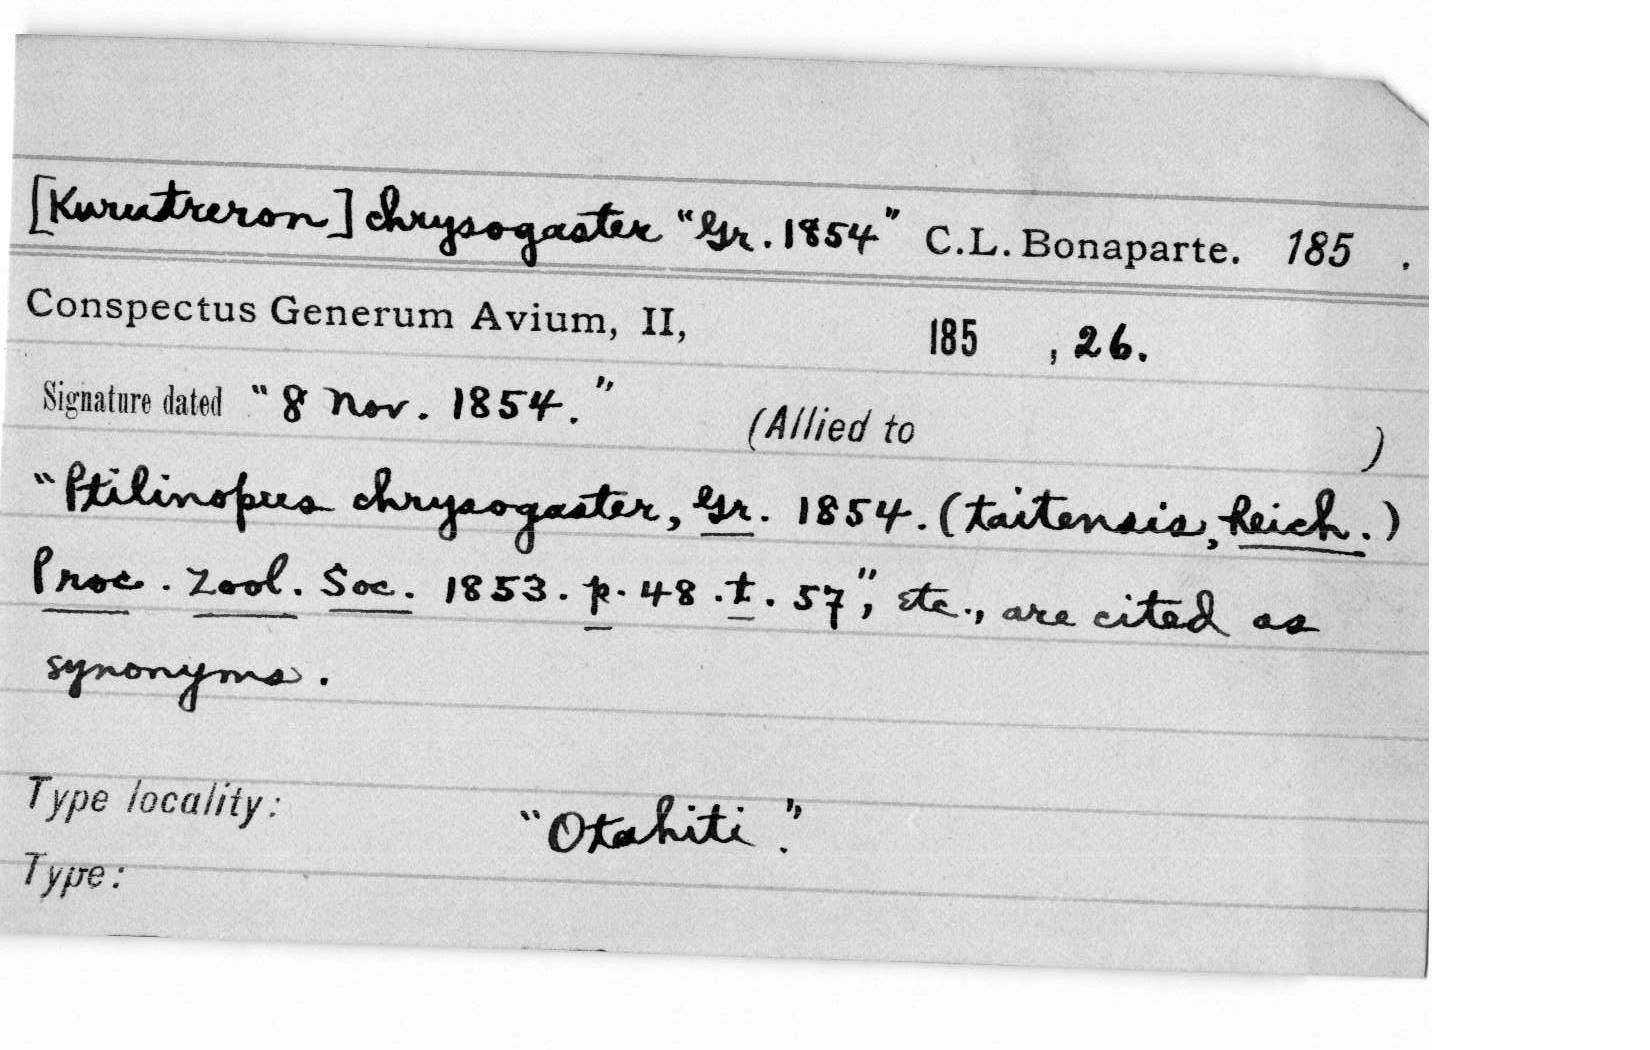 [Kurutreron] chrysogaster “Gr. 1854” C.L. Bonaparte. 185 .
Conspectus Generum Avium, II, 185 , 26.
Signature dated “8 Nov. 1854.” (Allied to )
“Ptilinopus chrysogaster, Gr. 1854. (taitensis, Reich.)
Proc. Zool. Soc. 1853. p. 48. t. 57”, etc., are cited as
synonyms.
Type locality: “Otahiti”.
Type: